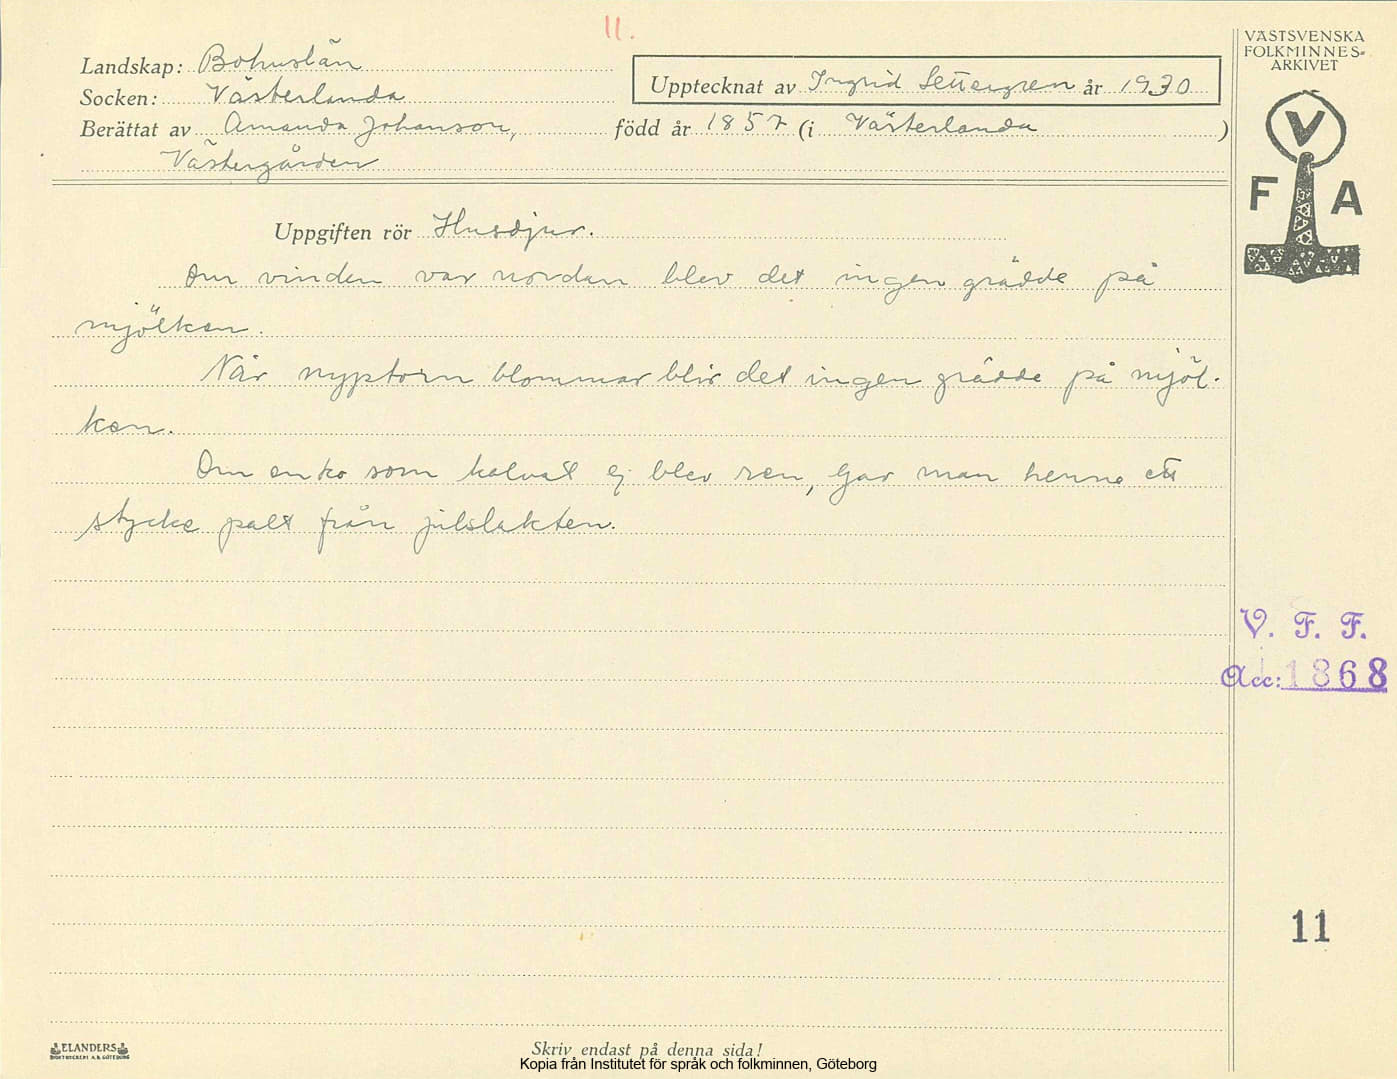 11.
VÄSTSVENSKA
FOLKMINNES-
ARKIVET
Landskap: Bohuslän
Socken: Västerlanda
Upptecknat av Ingrid Settergren år 1930
Berättat av Amanda Johanson, född år 1857 (i Västerlanda)
Västergården
V
F A
Uppgiften rör Husdjur.
Om vinden var nordan blev det ingen grädde på
mjölken.
När nyptorn blommar blir det ingen grädde på mjöl-
ken.
Om en ko som kalvat ej blev ren, gav man henne ett
stycke palt från julslakten.
V. F. F.
Acc: 1868
11
ELANDERS
BOKTRYCKERI A.B. GÖTEBORG
Skriv endast på denna sida!
Kopia från Institutet för språk och folkminnen, Göteborg